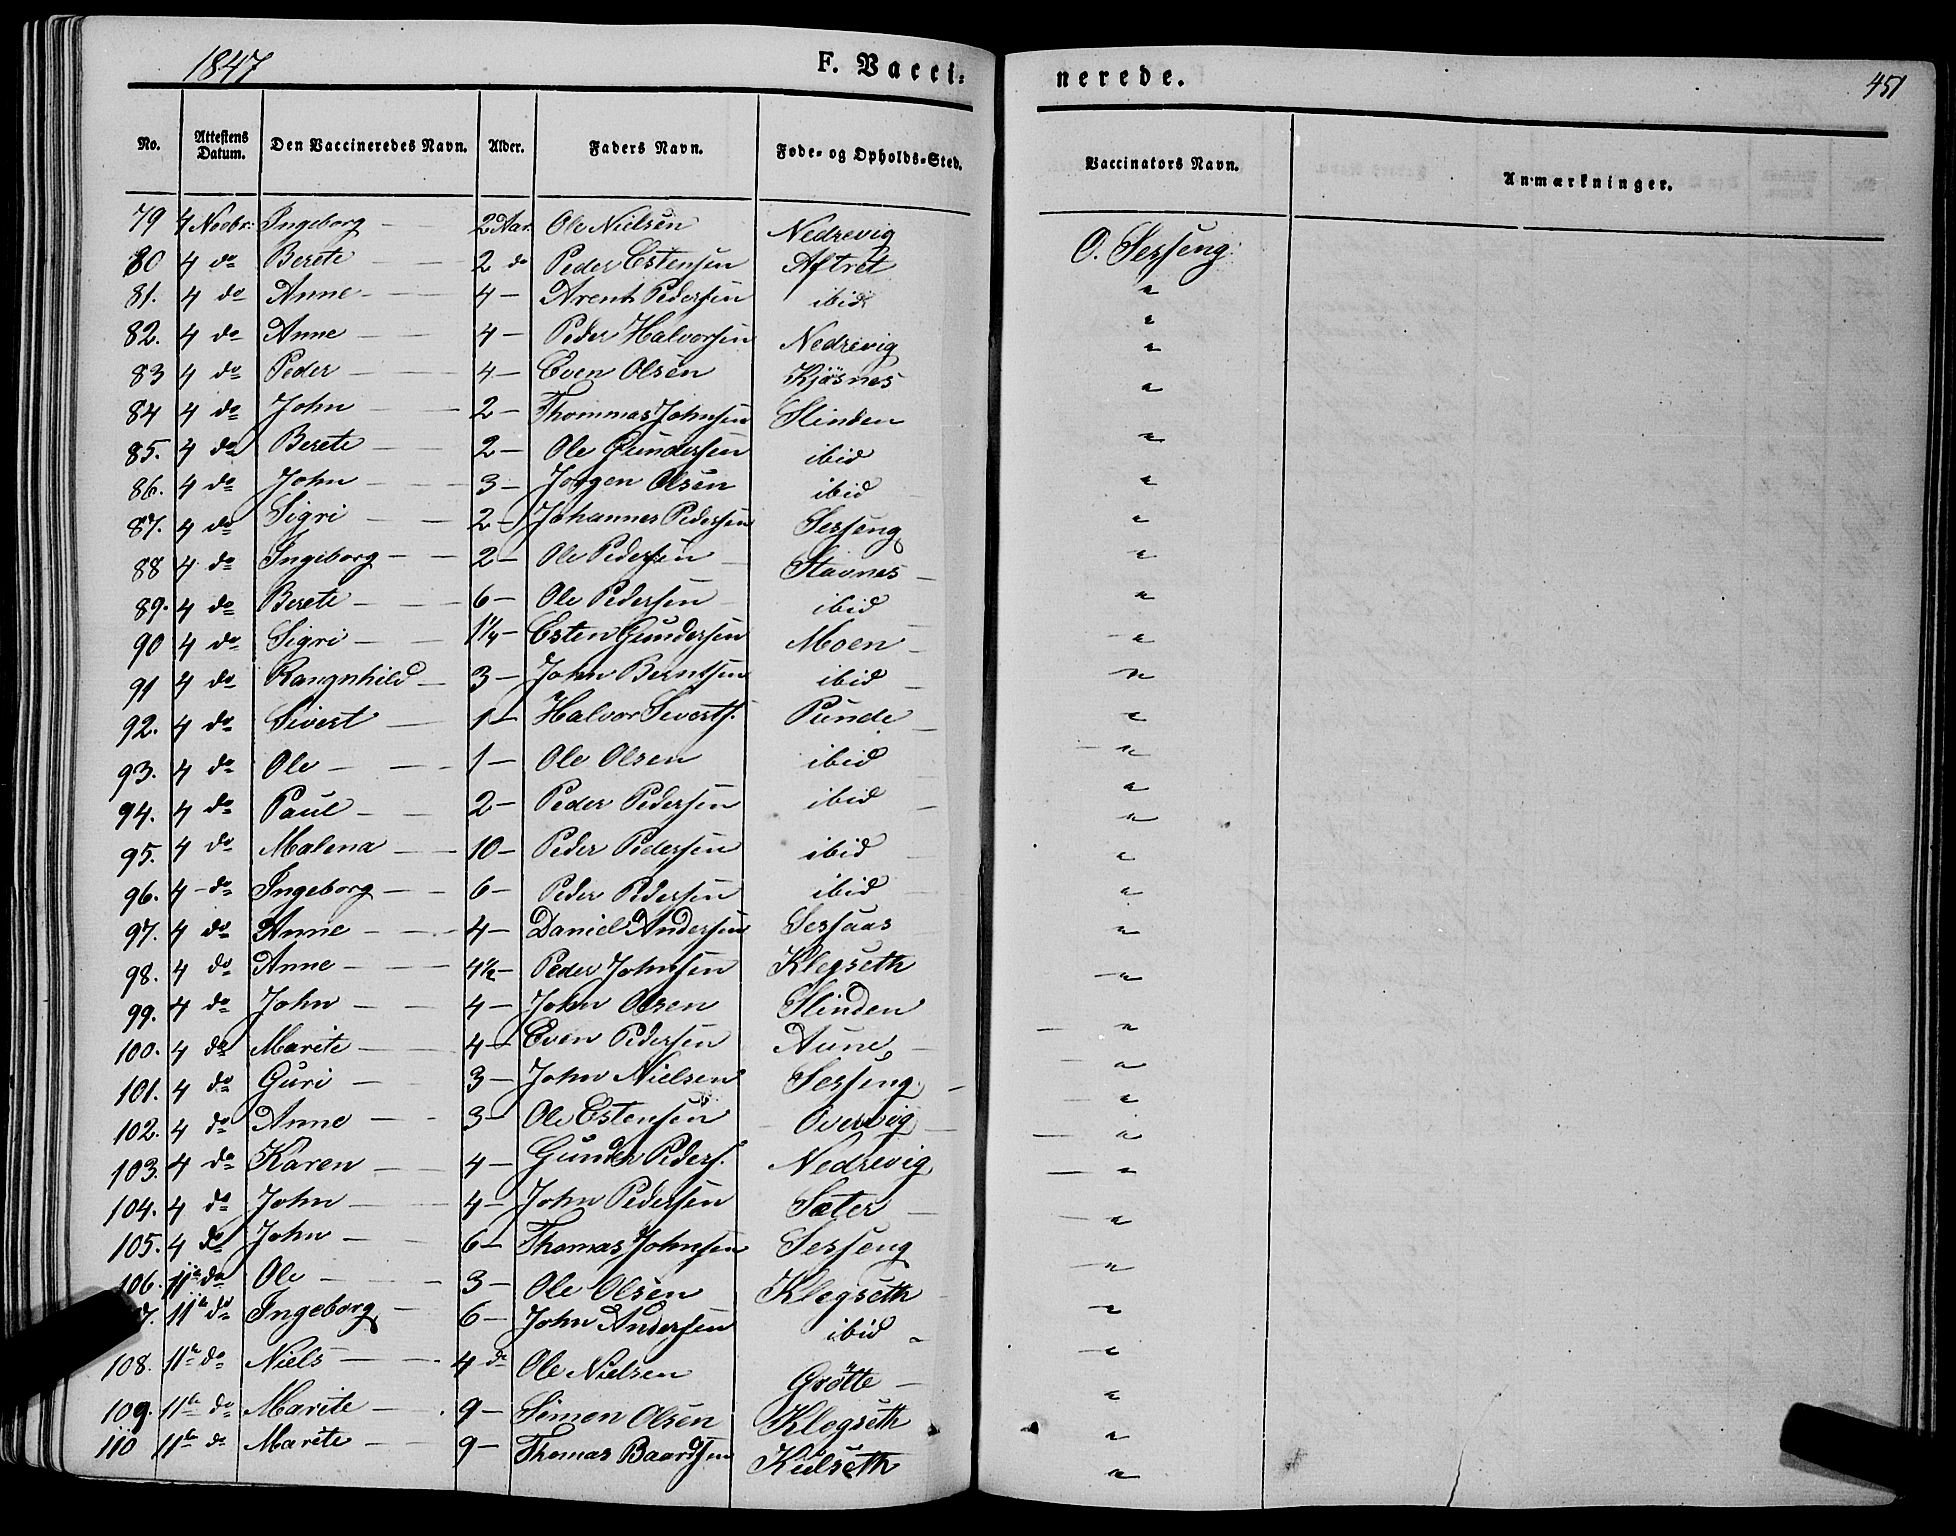 1847 F. Vacci- nerede. 451
No. Attestens Datum. Den Vaccineredes Navn. Alder. Faders Navn. Føde- og Opholds-Sted. Vaccinators Navn. Anmærkninger.
79 4 Novbr: Ingeborg — 2 Aar Ole Nielsen Nedrevig O. Sesseng:
80 4 do Berete — 2 do Peder Estensen Aftret "
81. 4 do Anne — 4 — Arent Pedersen ibid "
82. 4 do Anne — 4 — Peder Halvorsen Nedrevig "
83 4 do Peder — 4 — Even Olsen Kjøsnes "
84 4 do John — 2 — Thommas Johnsen Slinden "
85. 4 do Berete — 2 — Ole Gundersen ibid "
86. 4 do John — 3 — Jorgen Olsen ibid "
87. 4 do Sigri — 2 — Johannes Pedersen Sesseng "
88 4 do Ingeborg — 2 — Ole Pedersen Stavnes "
89. 4 do Berete — 6 — Ole Pedersen ibid "
90 4 do Sigri — 1 1/4 — Esten Gundersen Moen "
91 4 do Rangnhild — 3 — John Berntsen ibid "
92. 4 do Sivert — 1 — Halvor Siverts. Punde "
93. 4 do Ole — 1 — Ole Olsen ibid "
94. 4 do Paul — 2 — Peder Pedersen ibid "
95. 4 do Malena — 10 — Peder Pedersen ibid "
96. 4 do Ingeborg — 6 — Peder Pedersen ibid "
97. 4 do Anne — 4 — Daniel Andersen Sessaas "
98. 4 do Anne — 4 1/2 — Peder Johnsen Klegseth "
99. 4 do John — 4 — John Olsen Slinden "
100. 4 do Marite — 4 — Even Pedersen Aune "
101. 4 do Guri — 3 — John Nielsen Sesseng "
102. 4 do Anne — 3 — Ole Estensen Overvig "
103. 4 do Karen — 4 — Gunder Peders. Nedrevig "
104. 4 do John — 4 — John Pedersen Sæter "
105. 4 do John — 6 — Thomas Johnsen Sesseng "
106. 11te do Ole — 3 — Ole Olsen Klegseth "
7. 11te do Ingeborg — 6 — John Andersen ibid "
108. 11te do Niels — 4 do Ole Nielsen Grøtte "
109. 11te do Marite — 9 — Simon Olsen Klegseth "
110 11te do Marite — 9 — Thomas Baardsen Kulseth "